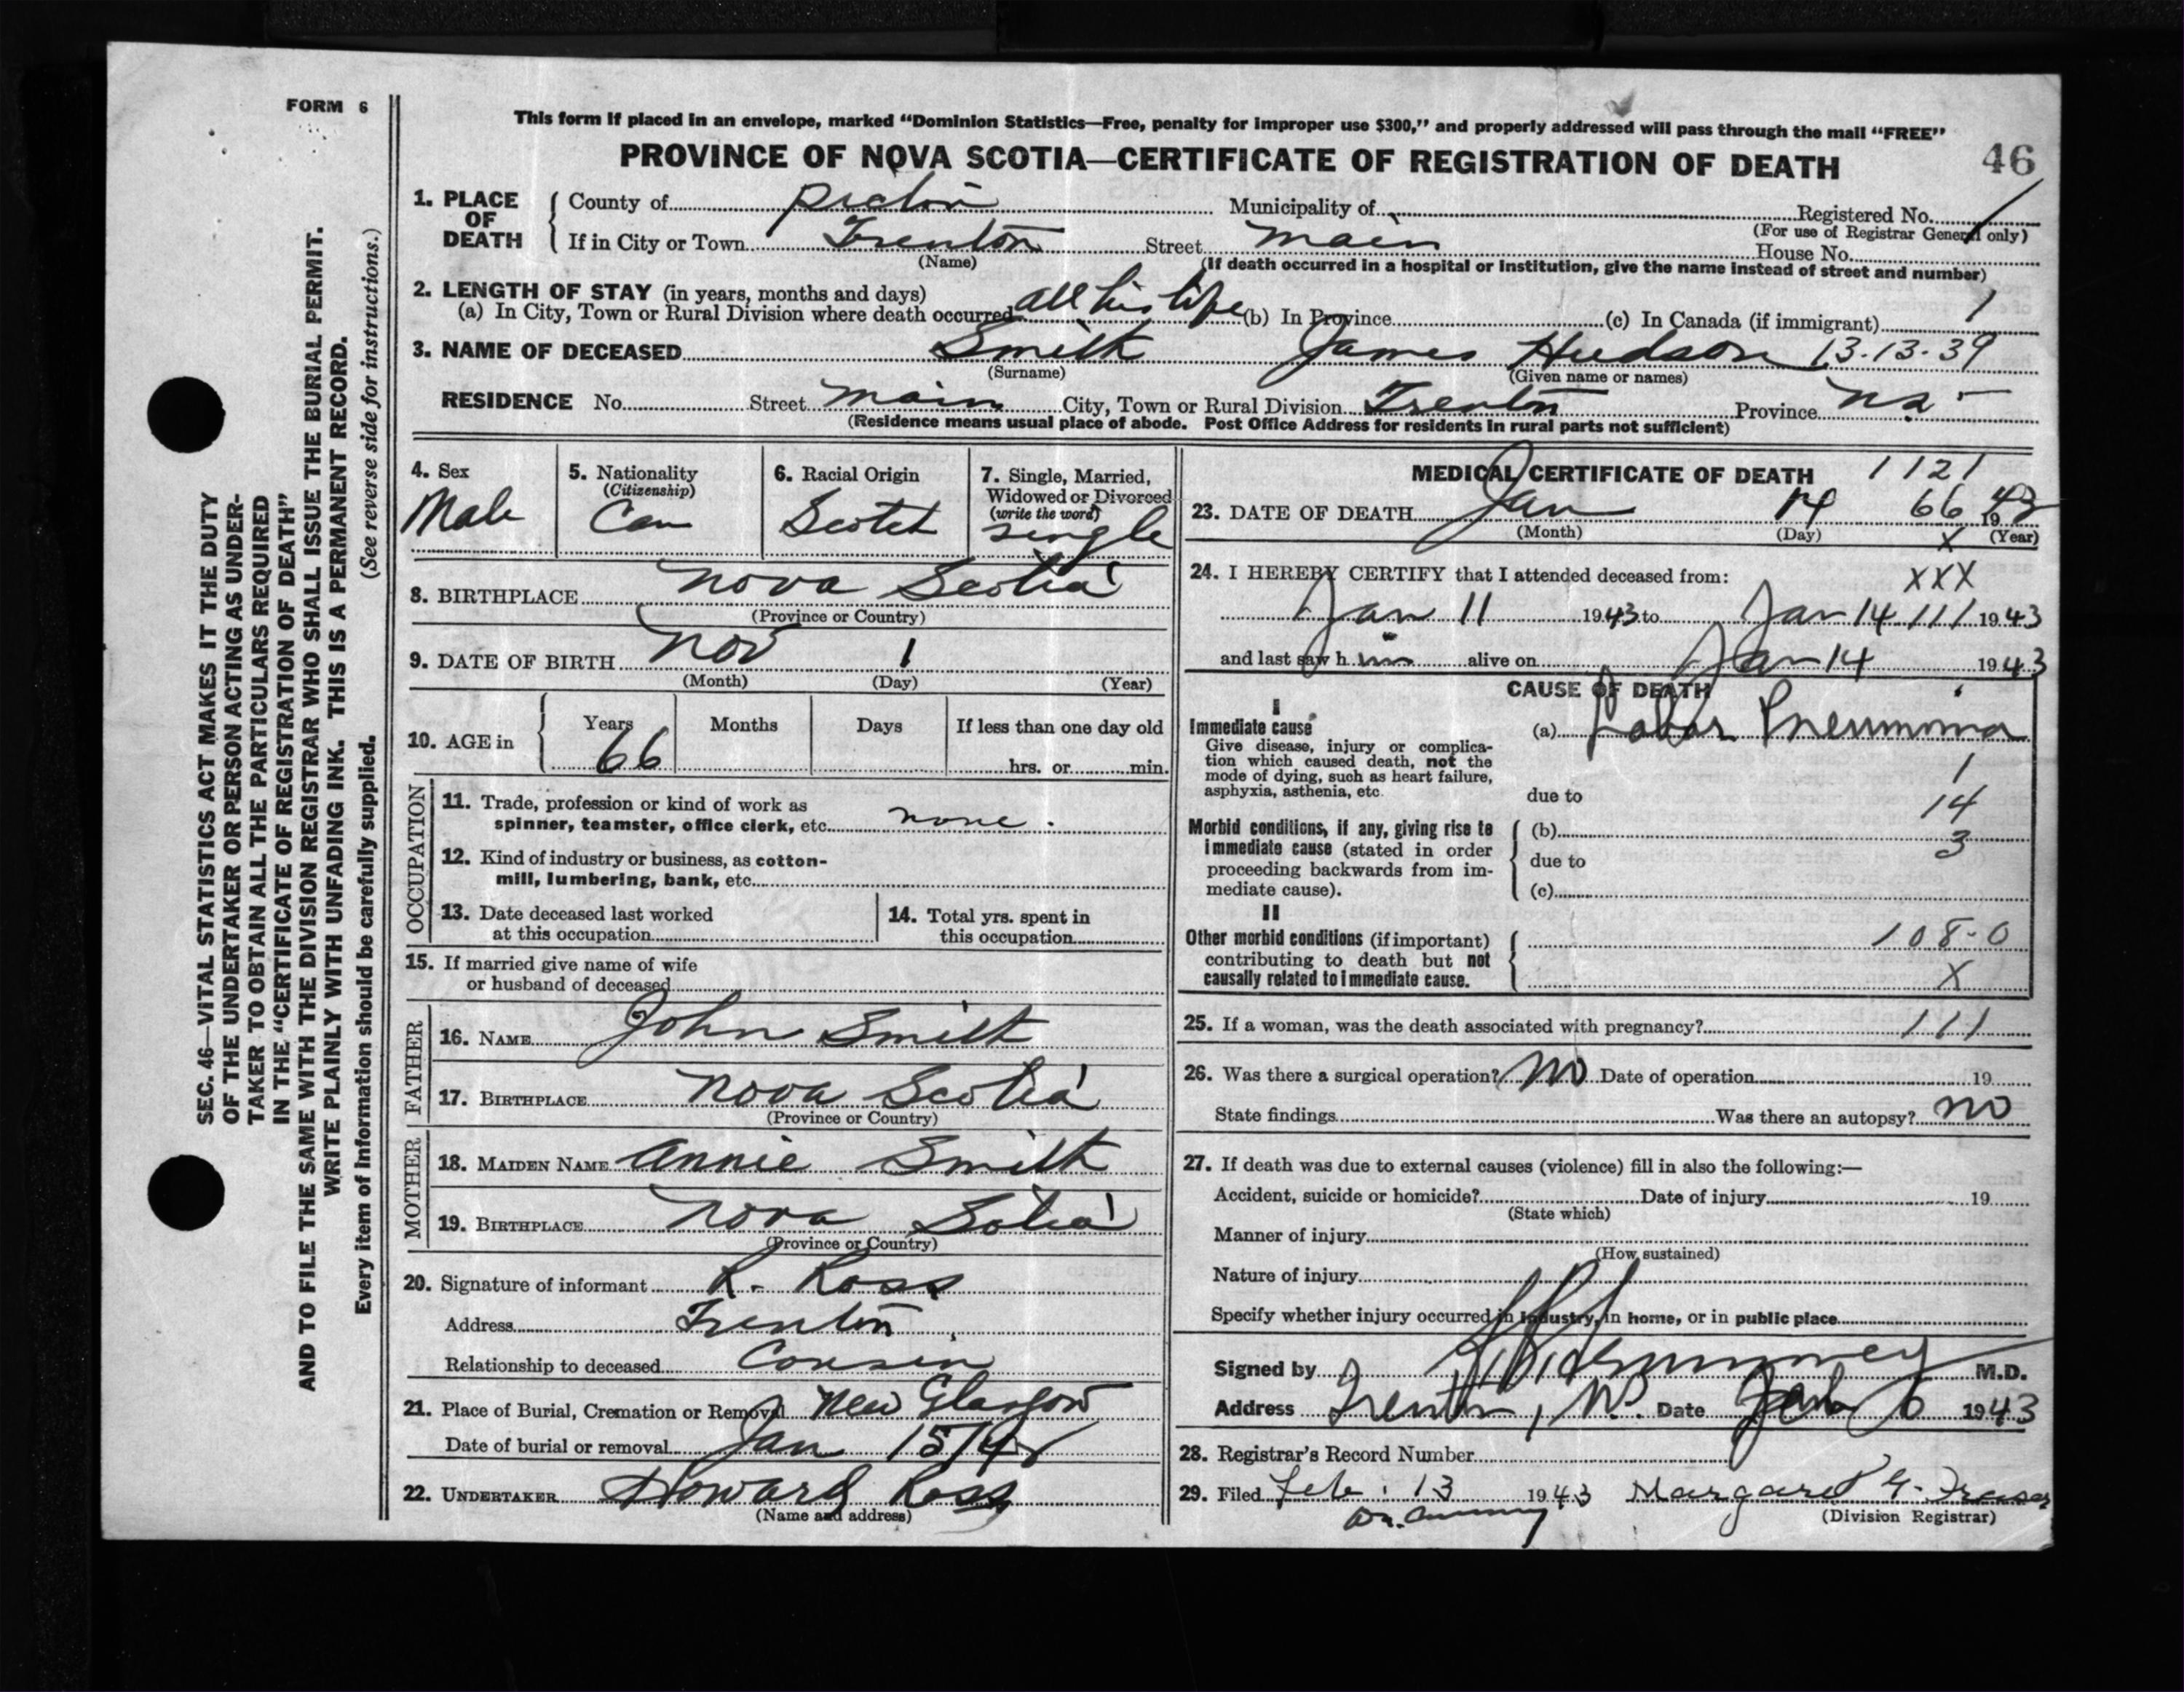 FORM 6
SEC. 46—VITAL STATISTICS ACT MAKES IT THE DUTY
OF THE UNDERTAKER OR PERSON ACTING AS UNDER-
TAKER TO OBTAIN ALL THE PARTICULARS REQUIRED
IN THE "CERTIFICATE OF REGISTRATION OF DEATH"
AND TO FILE THE SAME WITH THE DIVISION REGISTRAR WHO SHALL ISSUE THE BURIAL PERMIT.
WRITE PLAINLY WITH UNFADING INK. THIS IS A PERMANENT RECORD.
Every item of information should be carefully supplied. (See reverse side for instructions.)
This form if placed in an envelope, marked "Dominion Statistics—Free, penalty for improper use $300," and properly addressed will pass through the mail "FREE"
PROVINCE OF NOVA SCOTIA—CERTIFICATE OF REGISTRATION OF DEATH 46
1. PLACE OF DEATH
County of Pictou Municipality of Registered No.
(For use of Registrar General only)
If in City or Town Trenton Street Main House No.
(Name) (If death occurred in a hospital or institution, give the name instead of street and number)
2. LENGTH OF STAY (in years, months and days)
(a) In City, Town or Rural Division where death occurred all his life (b) In Province (c) In Canada (if immigrant) 1
3. NAME OF DECEASED Smith James Hudson 13-13-39
(Surname) (Given name or names)
RESIDENCE No. Street Main City, Town or Rural Division Trenton Province N.S.
(Residence means usual place of abode. Post Office Address for residents in rural parts not sufficient)
4. Sex
Male
5. Nationality
(Citizenship)
Can
6. Racial Origin
Scotch
7. Single, Married,
Widowed or Divorced
(write the word)
Single
8. BIRTHPLACE Nova Scotia
(Province or Country)
9. DATE OF BIRTH Nov 1
(Month) (Day) (Year)
10. AGE in
Years Months Days If less than one day old
66 hrs. or min.
OCCUPATION
11. Trade, profession or kind of work as
spinner, teamster, office clerk, etc. none.
12. Kind of industry or business, as cotton-
mill, lumbering, bank, etc.
13. Date deceased last worked
at this occupation
14. Total yrs. spent in
this occupation
15. If married give name of wife
or husband of deceased
FATHER
16. NAME John Smith
17. BIRTHPLACE Nova Scotia
(Province or Country)
MOTHER
18. MAIDEN NAME Annie Smith
19. BIRTHPLACE Nova Sotia
(Province or Country)
20. Signature of informant R. Ross
Address Trenton
Relationship to deceased Cousin
21. Place of Burial, Cremation or Removal New Glasgow
Date of burial or removal Jan 15
22. UNDERTAKER Howard Ross
(Name and address)
MEDICAL CERTIFICATE OF DEATH 1121
23. DATE OF DEATH Jan 14 66 19
(Month) (Day) X (Year)
24. I HEREBY CERTIFY that I attended deceased from: XXX
Jan 11 1943 to Jan 14 111 1943
and last saw him alive on Jan 14 1943
CAUSE OF DEATH
I
Immediate cause
Give disease, injury or complica-
tion which caused death, not the
mode of dying, such as heart failure,
asphyxia, asthenia, etc.
(a) Lobar Pneumonia
1
due to 14
Morbid conditions, if any, giving rise to
immediate cause (stated in order
proceeding backwards from im-
mediate cause).
(b) 3
due to
(c)
II
Other morbid conditions (if important)
contributing to death but not
causally related to immediate cause.
108-0
X
25. If a woman, was the death associated with pregnancy? 111
26. Was there a surgical operation? No Date of operation 19
State findings Was there an autopsy? no
27. If death was due to external causes (violence) fill in also the following:—
Accident, suicide or homicide? Date of injury 19
(State which)
Manner of injury
(How sustained)
Nature of injury
Specify whether injury occurred in industry, in home, or in public place
Signed by M.D.
Address Trenton, Date 1943
28. Registrar's Record Number
29. Filed Feb. 13 1943 Margaret G. Fraser
(Division Registrar)
Dr.